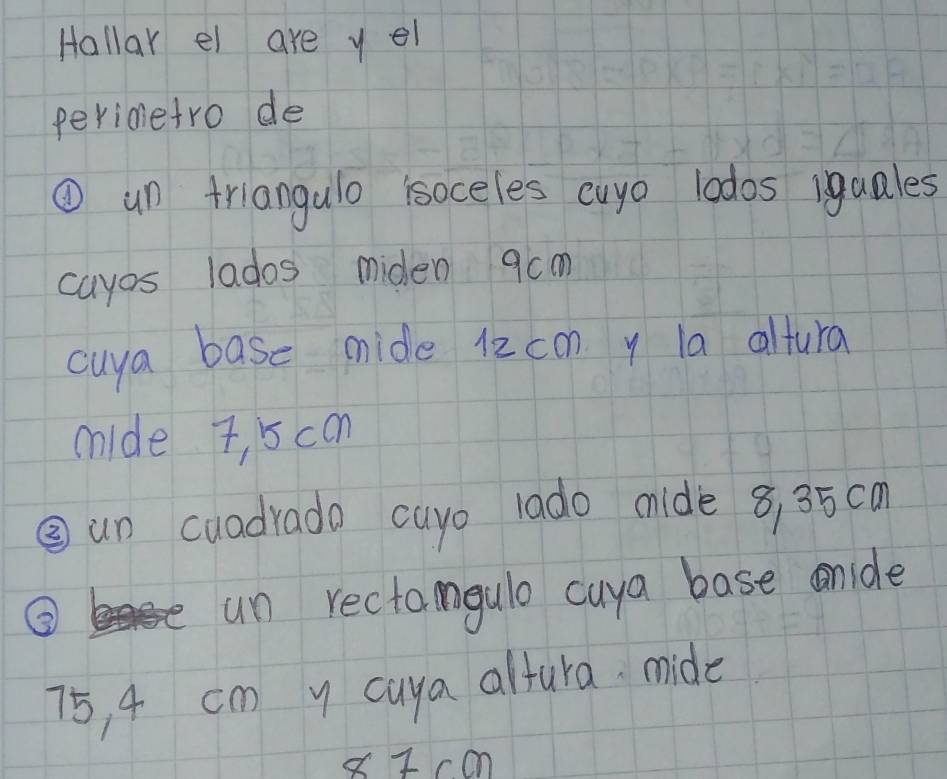 Hallar el are y el
perimetro de
① un triangulo isoceles cuyo lodos iguales
cuyos lados miden 9cm
cuya base mide 12 cm y la altura
mide 7,5 cm
② un cuadrado cuyo lado mide 8,35 cm
③ un rectamgulo cuya base mide
75,4 cm y cuya altura mide
87 cm